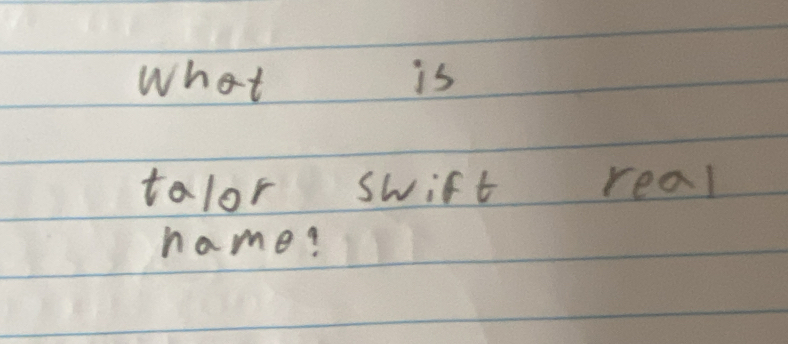 What is
talor swift real
name?